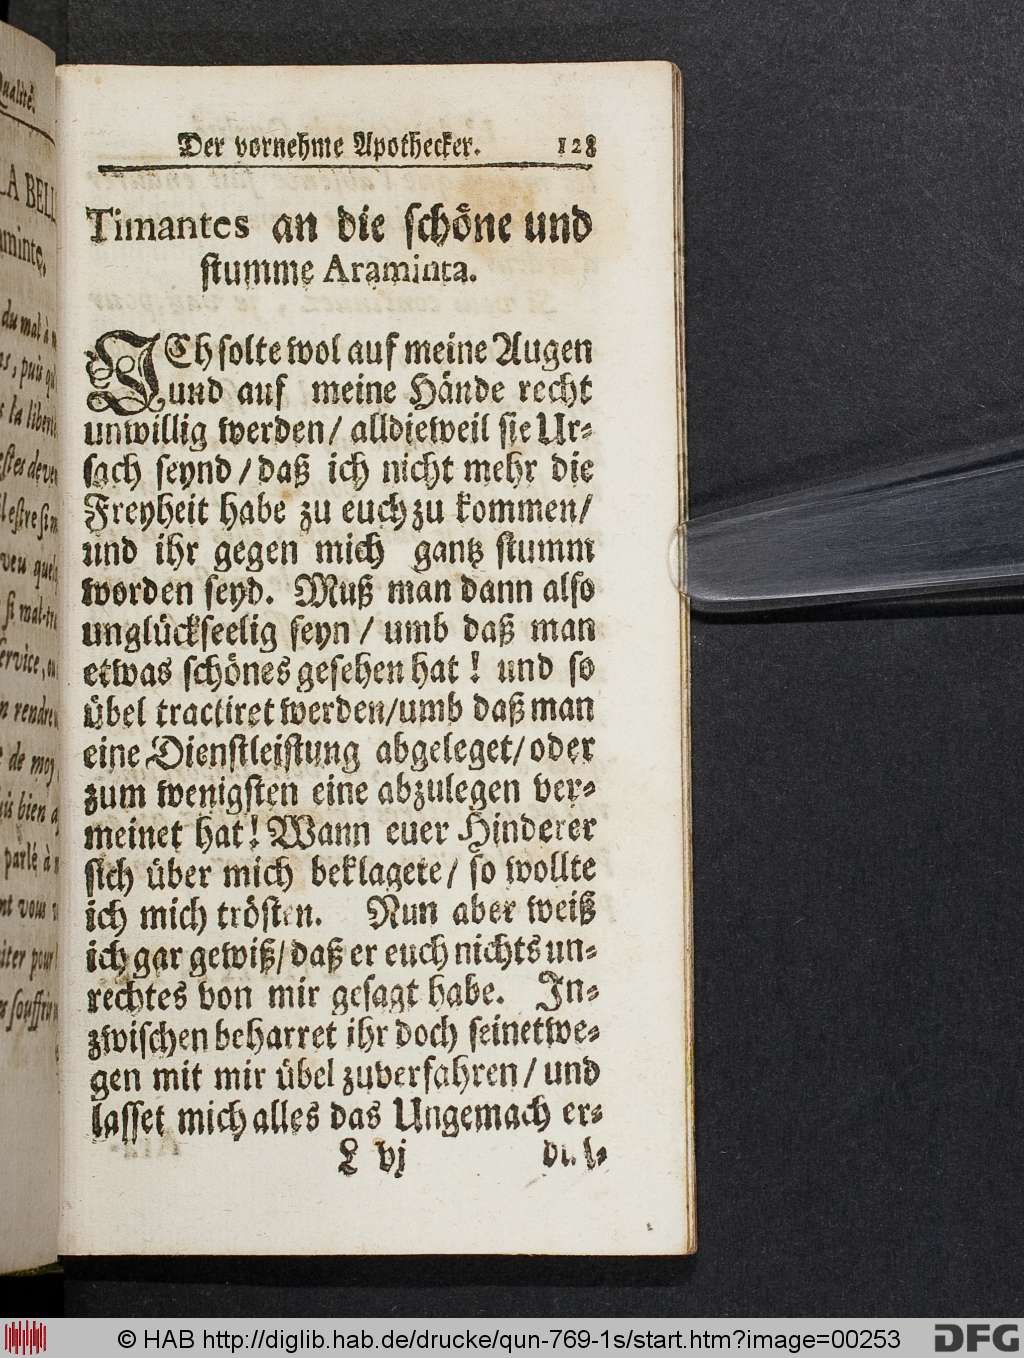 Qualité.
Der vornehme Apothecker. 128
LA BELL
Timantes an die schöne und
stumme Araminta.
ICh solte wol auf meine Augen
und auf meine Hände recht
unwillig werden/ alldieweil sie Ur-
sach seynd/ daß ich nicht mehr die
Freyheit habe zu euch zu kommen/
und ihr gegen mich gantz stumm
worden seyd. Muß man dann also
unglückseelig seyn/ umb daß man
etwas schönes gesehen hat! und so
übel tractiret werden/umb daß man
eine Dienstleistung abgeleget/ oder
zum wenigsten eine abzulegen ver-
meinet hat! Wann euer Hinderer
sich über mich beklagete/ so wollte
ich mich trösten. Nun aber weiß
ich gar gewiß/ daß er euch nichts un-
rechtes von mir gesagt habe. In-
zwischen beharret ihr doch seinetwe-
gen mit mir übel zuverfahren/ und
lasset mich alles das Ungemach er-
L vj
© HAB http://diglib.hab.de/drucke/qun-769-1s/start.htm?image=00253
DFG